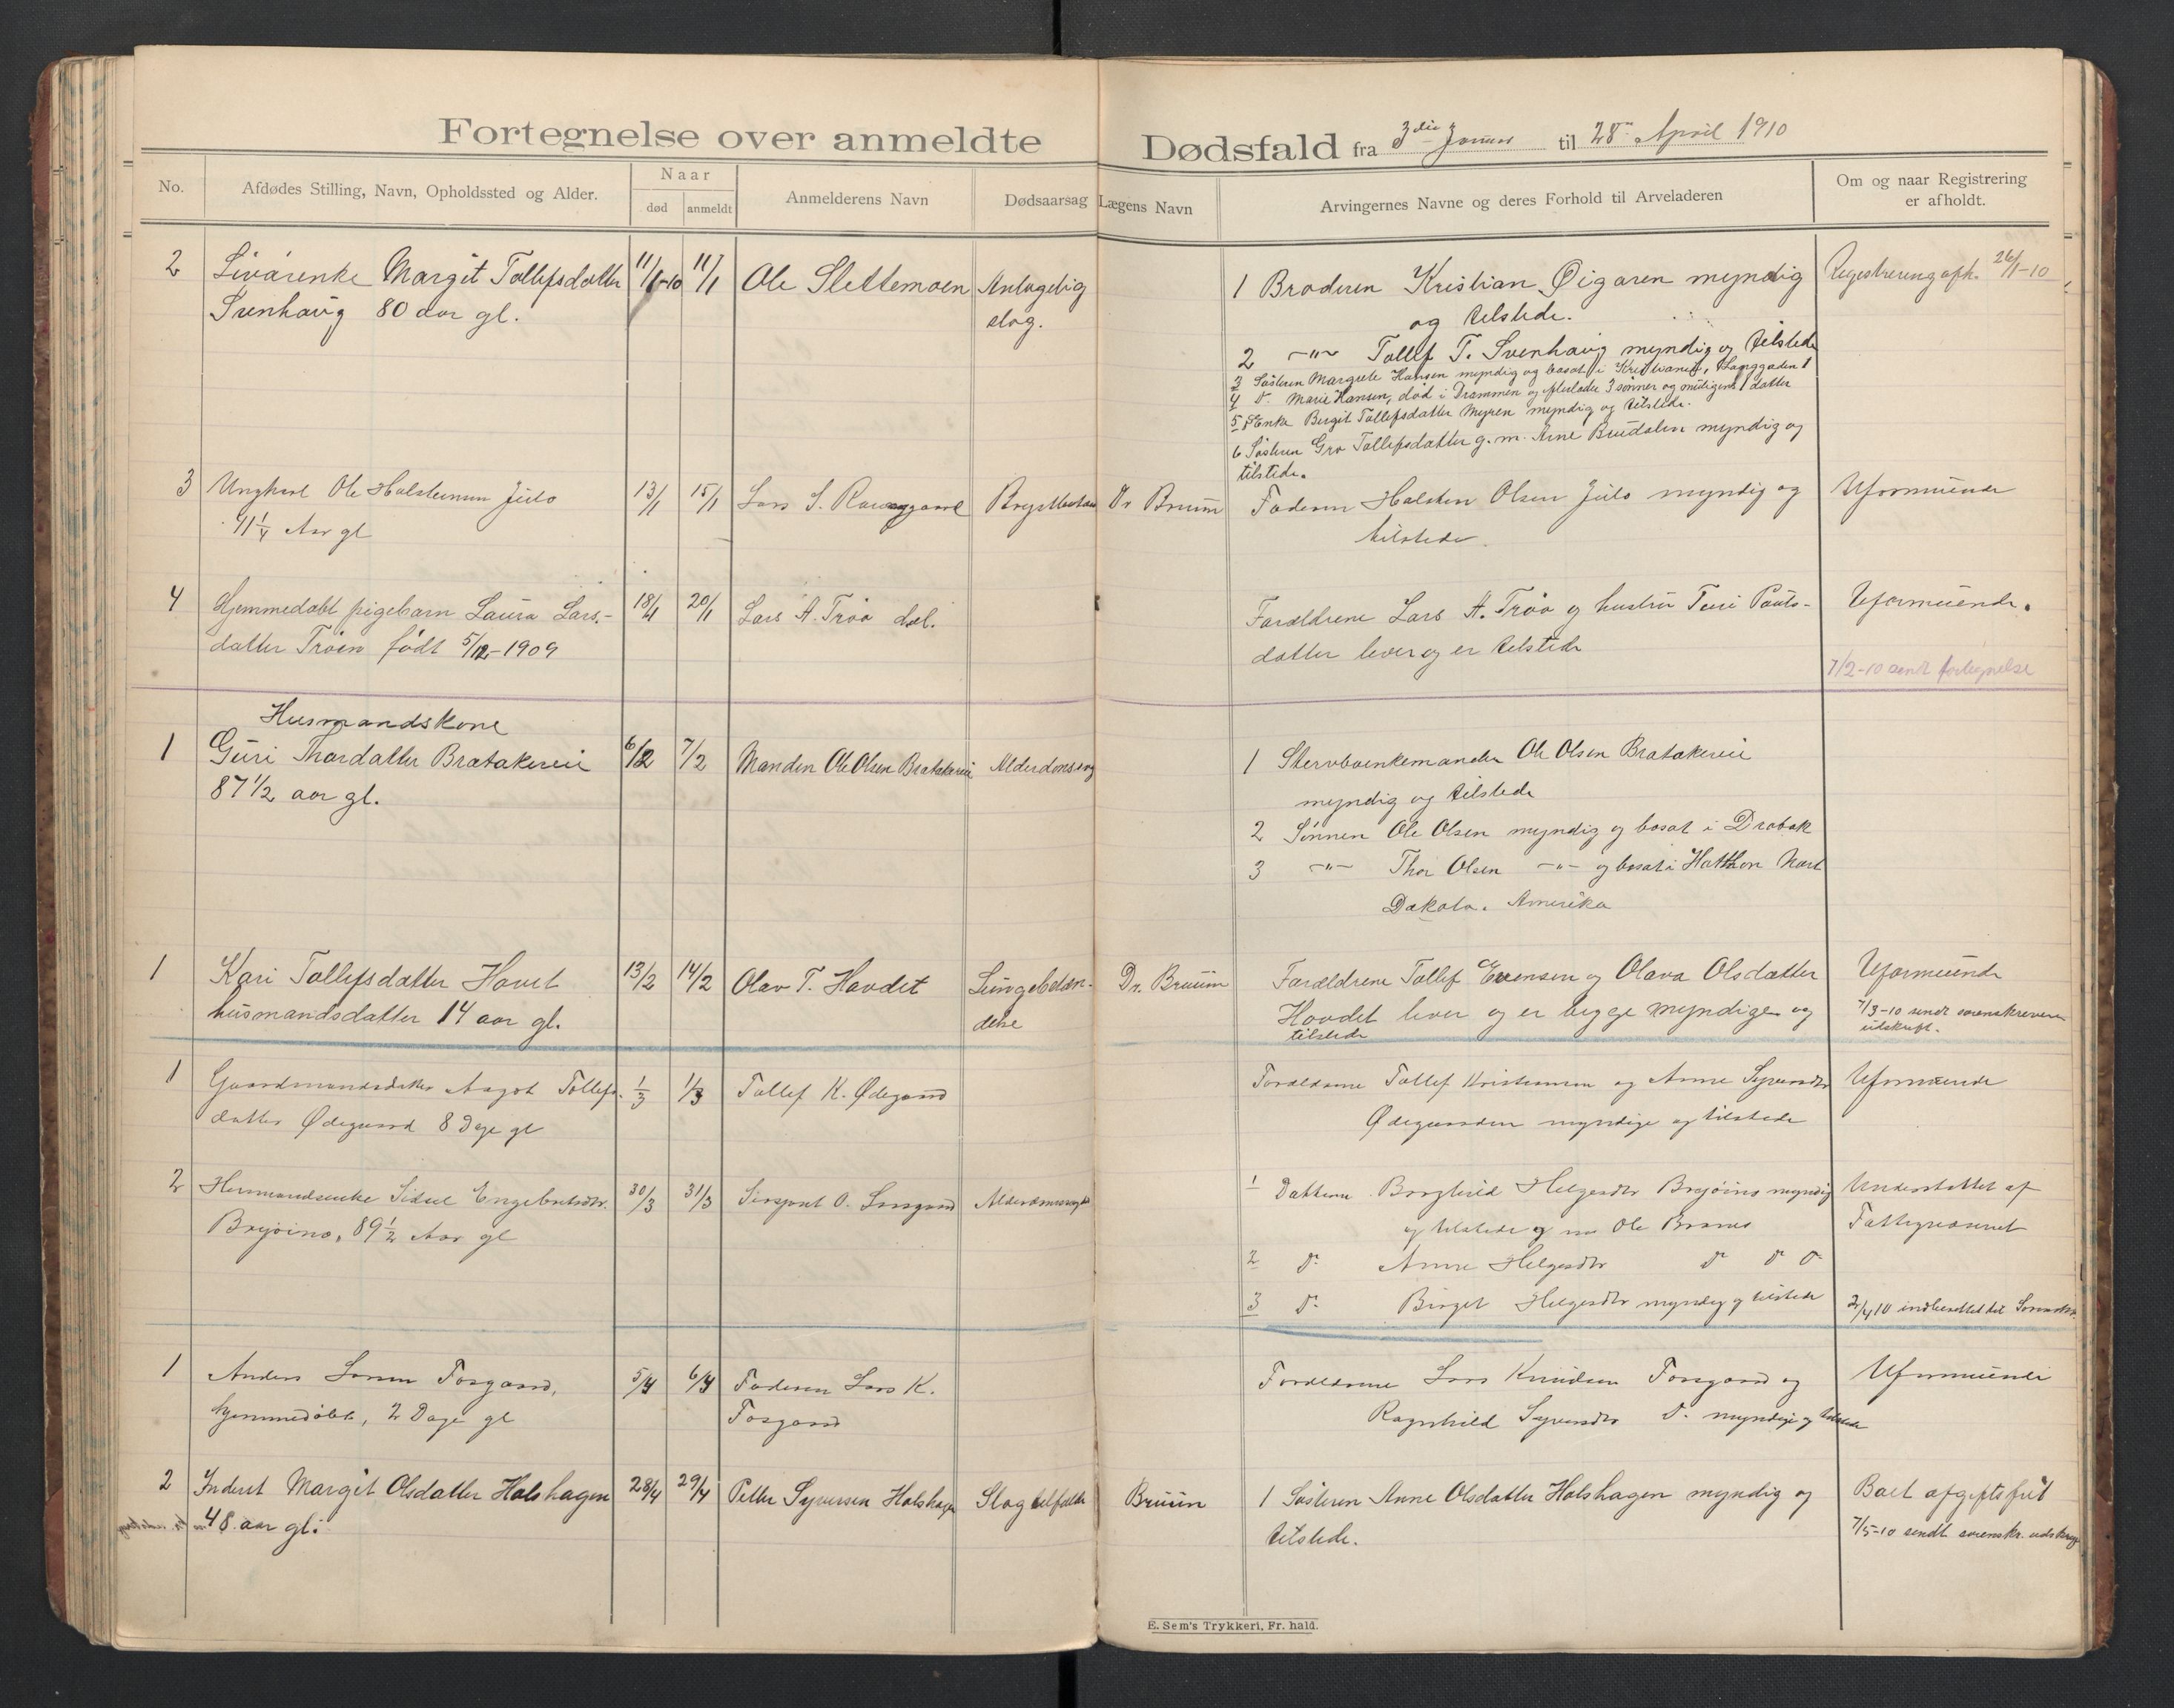 Fortegnelse over anmeldte Dødsfald fra 3die Januar til 28de April 1910
No. Afdødes Stilling, Navn, Opholdssted og Alder. Naar død anmeldt Anmelderens Navn Dødsaarsag Lægens Navn Arvingernes Navne og deres Forhold til Arveladeren Om og naar Registrering er afholdt.
2 Margit Tollefsdatter 11/1-10 11/1 Ole Slettemoen Antagelig 1 Broderen Kristian Øigaren myndig 26/1-10
Svenhaug 80 aar gl. slag. og tilstede.
2 -"- Tollef T. Svenhaug myndig og tilstede
3 Søsteren Margrete Hansen myndig og bosat i Kristiania, Langgaden 1
4 Do. Marie Hansen, død i Drammen og efterlader 3 sønner og 1 datter
5 Enke Bergit Tollefsdatter Myren myndig og tilstede.
6 Søsteren Gro Tollefsdatter g. m. Arne Brudalen myndig og
tilstede.
3 Ungkarl Ole Halstensen Juto 13/1 15/1 Lars S. Dr Bruun Faderen Halsten Olsen Juto myndig og Uformuende
41 1/4 Aar gl tilstede.
4 Hjemmedøbt pigebarn Laura Lars- 18/1 20/1 Lars A. Trøo Forældrene Lars A. Trøo og hustru Turi Pauls- Uformuende.
datter Trøen født 5/12-1909 datter lever og er tilstede
7/2-10 sendt fortegnelse
Husmandskone
1 Guri Thordatter Bratakereie 6/2 7/2 Manden Ole Olsen Bratakereie Alderdomssvag 1 Stervboenkemanden Ole Olsen Bratakereie
87 1/2 aar gl. myndig og tilstede
2 Sønnen Ole Olsen myndig og bosat i Drøbak
3 -"- Thor Olsen -"- og bosat i Hatthon Nort
Dakota. Amerika
1 Kari Tollefsdatter Hovet 13/2 14/2 Olav T. Hovdet Lungebetæn- Dr. Bruun Forældrene Tollef Evensen og Olava Olsdatter Uformuende
husmandsdatter 14 aar gl. delse Hovdet lever og er begge myndige og 7/3-10 sendt sorenskriveren
tilstede udskrift.
1 Gaardmandsdatter Aagot Tollefs- 1/3 1/3 Tollef K. Ødegaard Forældrene Tollef Kristensen og Anne Syversdtr Uformuende
datter Ødegaard 8 Dage gl Ødegaarden myndige og tilstede
2 Husmandsenke Sidsel Engebretsdtr. 30/3 31/3 O. Alderdomssvaghed 1 Datteren Borghild Helgesdtr myndig Understøttet af
89 1/2 Aar gl og tilstede Ole Fattigvæsenet
2 Do. Anne Helgesdtr Do Do Do
3 Do. Birgit Helgesdtr myndig og tilstede 2/4 10 indberettet til Sorenskr.
1 Anders Larsen Torgaard, 5/4 6/4 Faderen Lars K. Forældrene Lars Knudsen Torgaard og Uformuende
hjemmedøbt, 2 Dage gl Torgaard Ragnhild Syversdtr Do. myndige og tilstede
2 Inderst Margit Olsdatter Holshagen 28/4 29/4 Petter Syversen Holshagen Slagtilfælde Bruun 1 Søsteren Anne Olsdatter Holshagen myndig og Boet afgiftsfrit
48 aar gl. tilstede. 7/5-10 sendt sorenskr. udskrift
E. Sem's Trykkeri, Fr. hald.